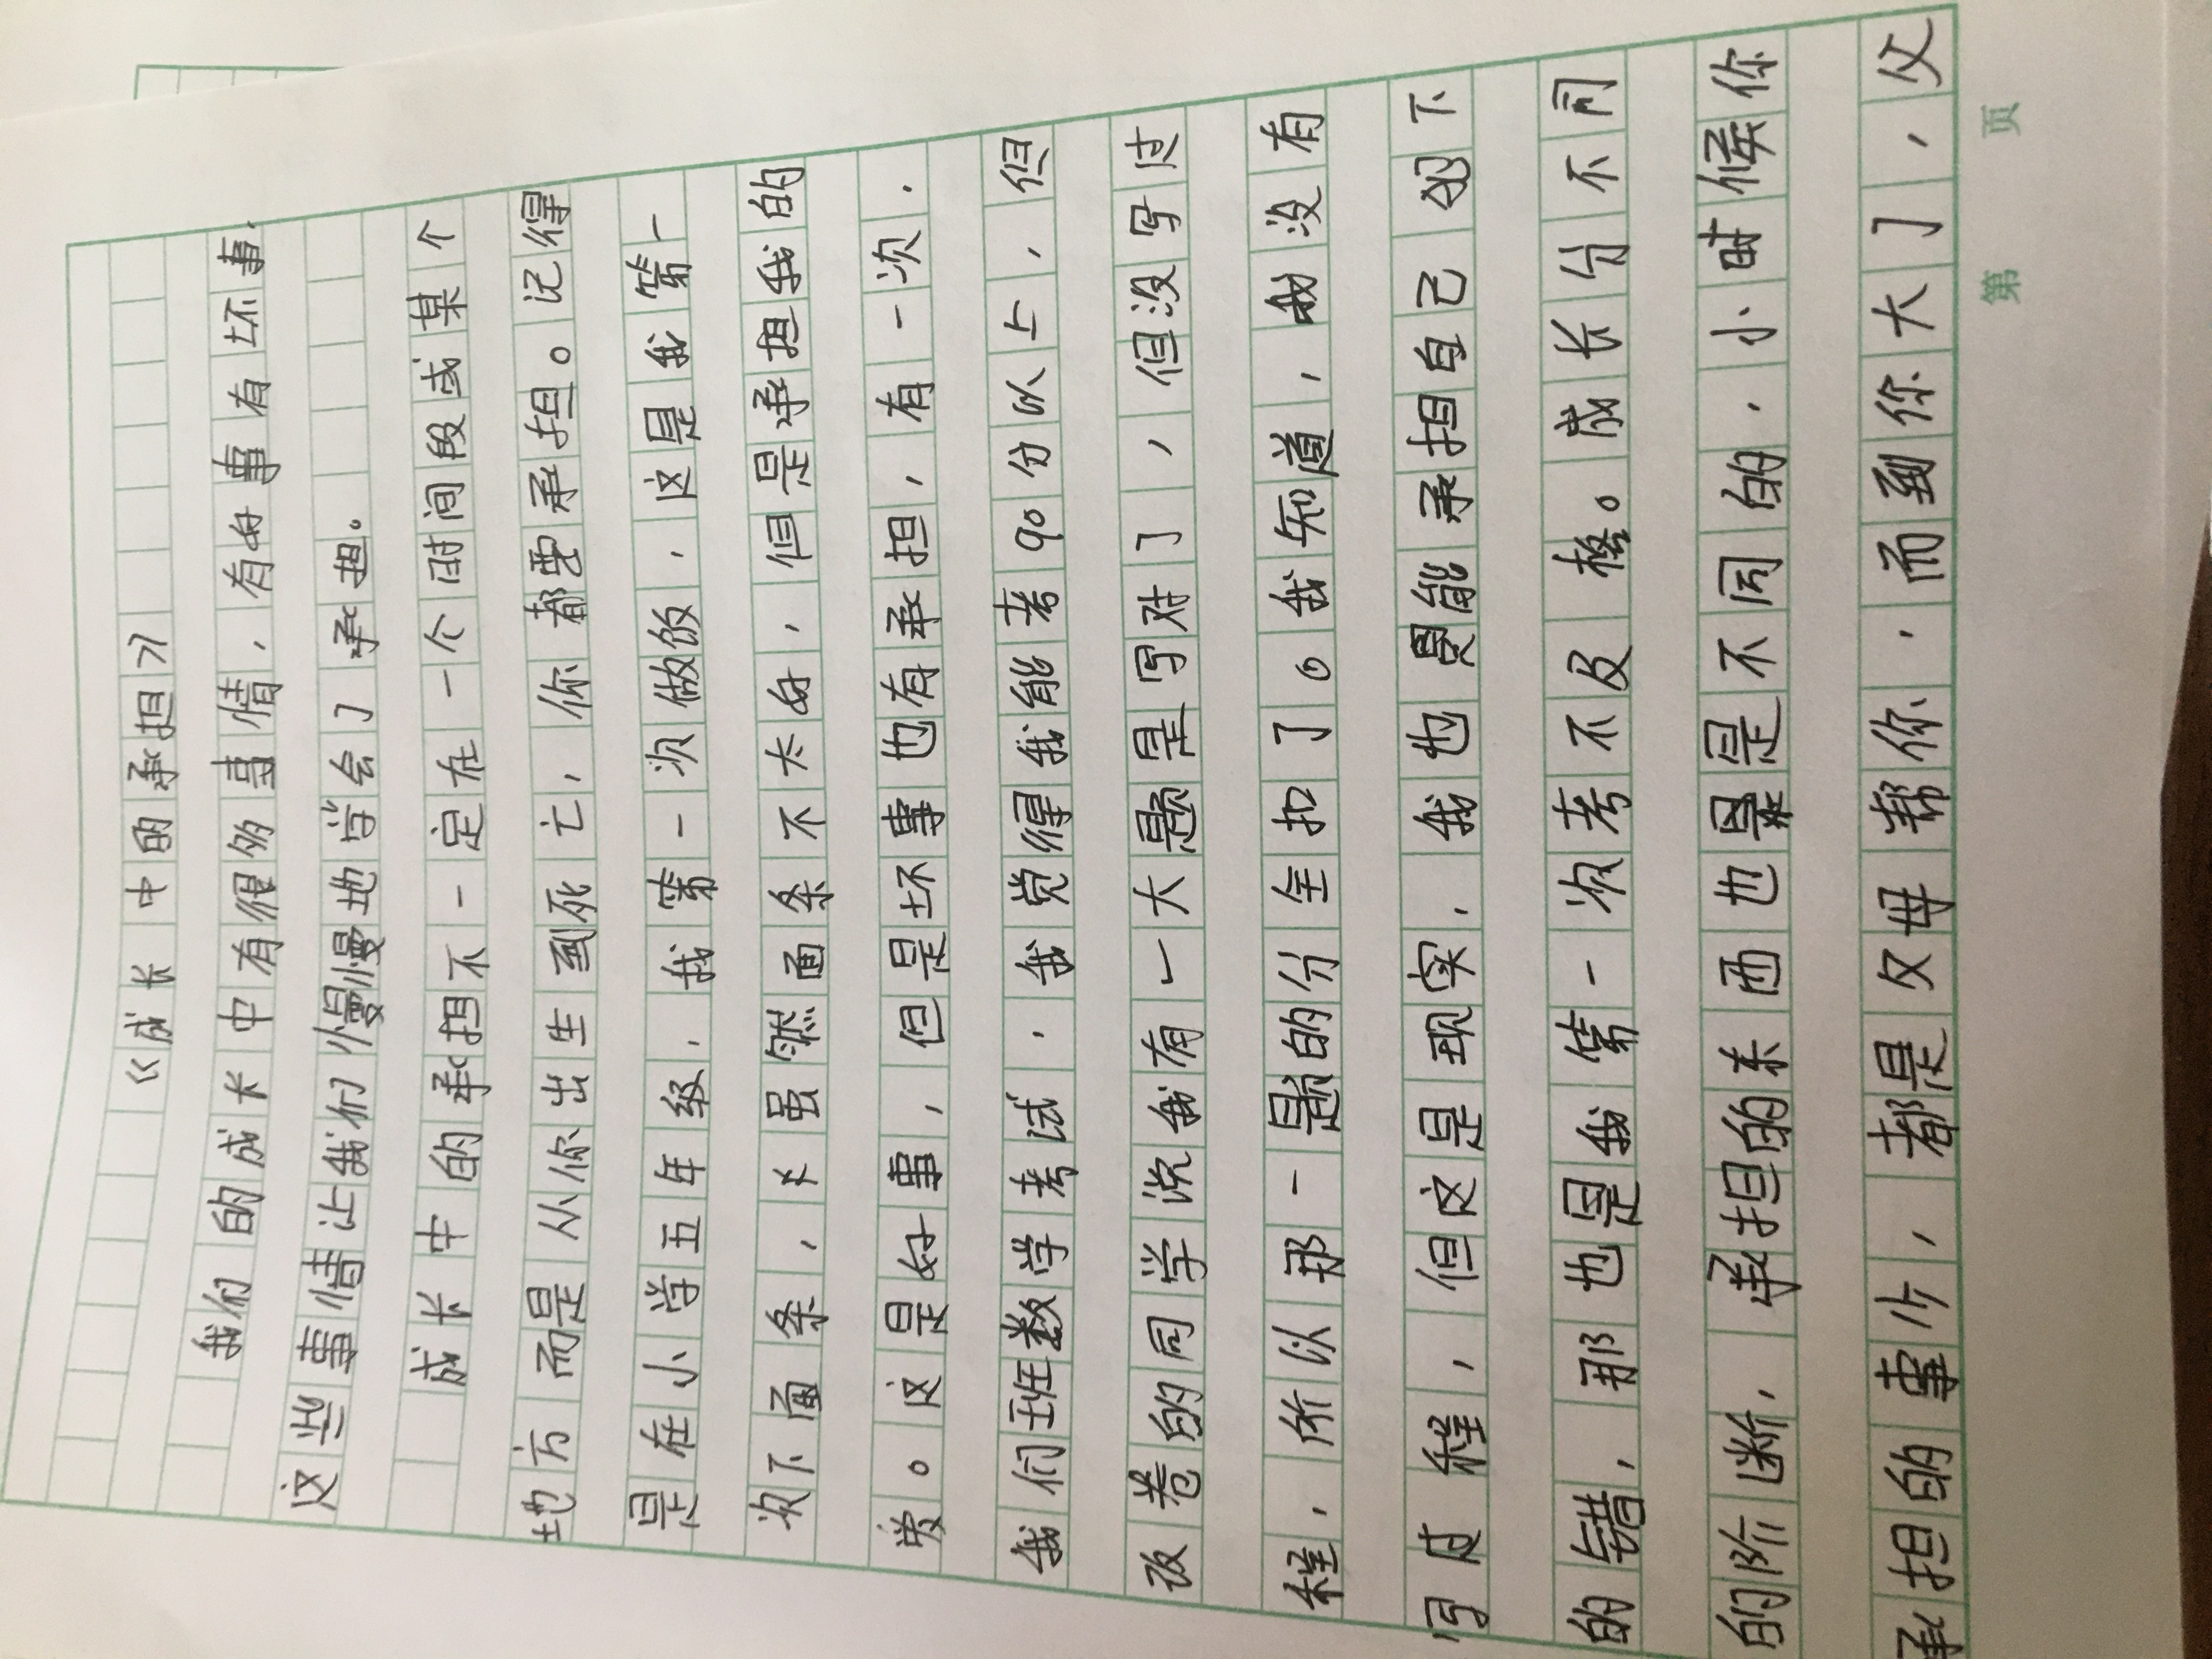 《成长中的承担》
我们的成长中有很多事情，有好事有坏事，
这些事情让我们慢慢地学会了承担。
成长中的承担不一定在一个时间段或某个
地方而是从你出生到死亡，你都要承担。记得
是在小学五年级，我第一次做饭，这是我第一
次下面条，虽然面条不太好，但是承担我的
爱。这是好事，但是坏事也有承担，有一次，
我们班数学考试，我觉得我能考90分以上，但
改卷的同学说我有一大题是写对了，但没写过
程，所以那一题的分全扣了。我知道，我没有
写过程，但这是现实，我也只能承担自己的下
的错，那也是我第一次考不及格。成长分不同
的阶断，承担的东西也是不同的，小时候你
承担的事少，都是父母帮你，而到你大了，父
第 页